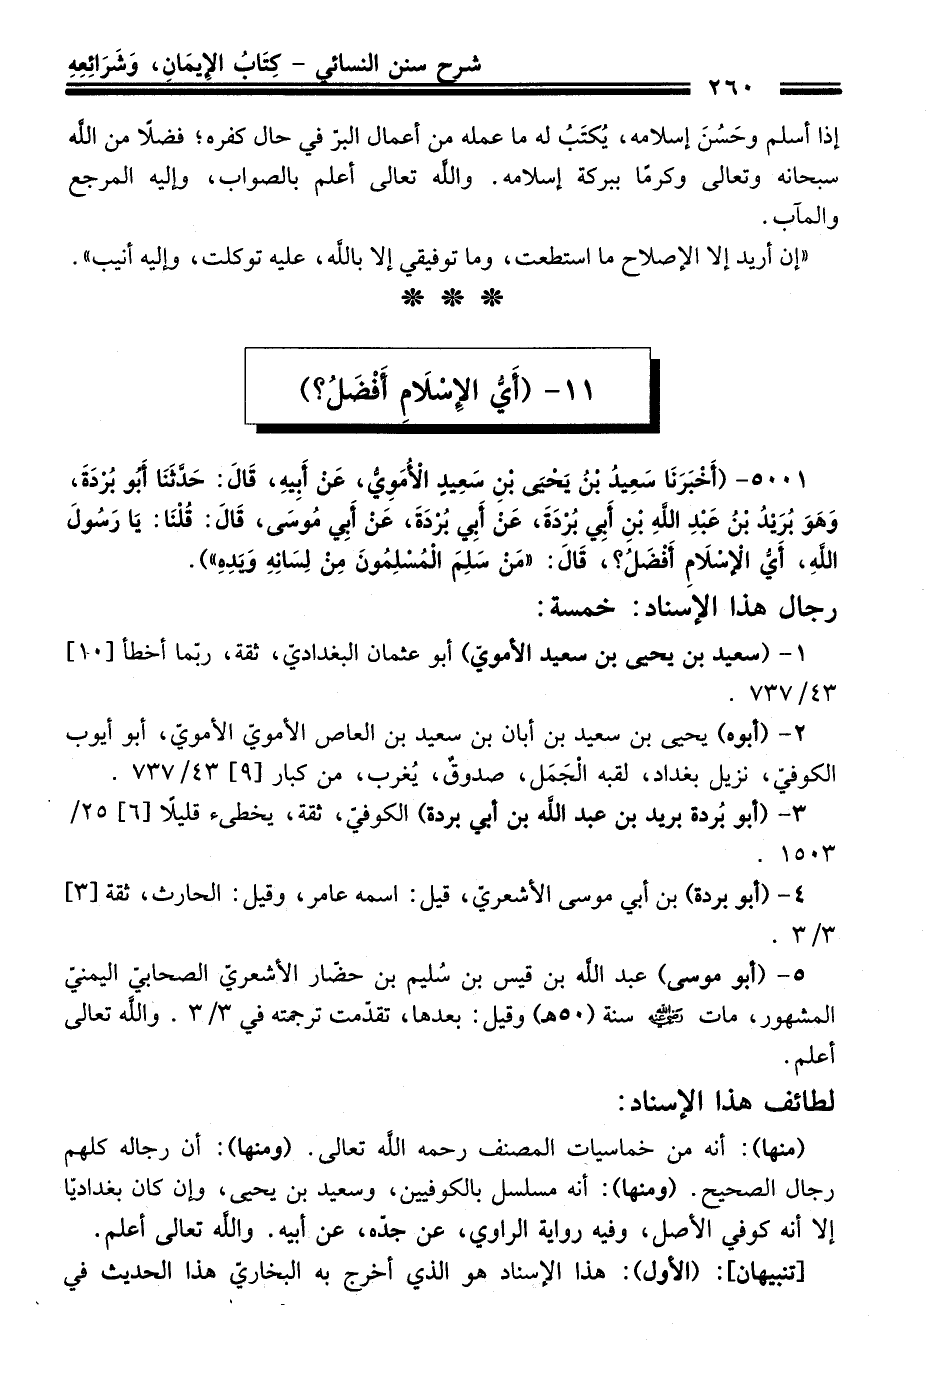 شرح سنن النسائي - كِتَابُ الإِيمَانِ، وَشَرَائِعِهِ
٢٦٠
إذا أسلم وحَسُنَ إسلامه، يُكتَبُ له ما عمله من أعمال البرّ في حال كفره؛ فضلًا من اللَّه
سبحانه وتعالى وكرمًا ببركة إسلامه. واللَّه تعالى أعلم بالصواب، وإليه المرجع
والمآب.
«إن أريد إلا الإصلاح ما استطعت، وما توفيقي إلا باللَّه، عليه توكلت، وإليه أنيب».
* * *
١١- (أَيُّ الإِسْلَامِ أَفْضَلُ؟)
٥٠٠١- (أَخْبَرَنَا سَعِيدُ بْنُ يَحْيَى بْنِ سَعِيدٍ الْأُمَوِيُّ، عَنْ أَبِيهِ، قَالَ: حَدَّثَنَا أَبُو بُرْدَةَ،
وَهَوَ بُرَيْدُ بْنُ عَبْدِ اللَّهِ بْنِ أَبِي بُرْدَةَ، عَنْ أَبِي بُرْدَةَ، عَنْ أَبِي مُوسَى، قَالَ: قُلْنَا: يَا رَسُولَ
اللَّهِ، أَيُّ الْإِسْلَامِ أَفْضَلُ؟، قَالَ: «مَنْ سَلِمَ الْمُسْلِمُونَ مِنْ لِسَانِهِ وَيَدِهِ»).
رجال هذا الإسناد: خمسة:
١- (سعيد بن يحيى بن سعيد الأمويّ) أبو عثمان البغداديّ، ثقة، ربّما أخطأ [١٠]
٤٣/ ٧٣٧ .
٢- (أبوه) يحيى بن سعيد بن أبان بن سعيد بن العاص الأمويّ الأمويّ، أبو أيوب
الكوفيّ، نزيل بغداد، لقبه الْجَمَل، صدوقٌ، يُغرب، من كبار [٩] ٤٣/ ٧٣٧ .
٣- (أبو بُردة بريد بن عبد اللَّه بن أبي بردة) الكوفيّ، ثقة، يخطىء قليلًا [٦] ٢٥/
١٥٠٣ .
٤- (أبو بردة) بن أبي موسى الأشعريّ، قيل: اسمه عامر، وقيل: الحارث، ثقة [٣]
٣/ ٣ .
٥- (أبو موسى) عبد اللَّه بن قيس بن سُليم بن حضّار الأشعريّ الصحابيّ اليمنيّ
المشهور، مات رضي الله عنه سنة (٥٠هـ) وقيل: بعدها، تقدّمت ترجمته في ٣/ ٣ . واللَّه تعالى
أعلم.
لطائف هذا الإسناد:
(منها): أنه من خماسيات المصنف رحمه اللَّه تعالى. (ومنها): أن رجاله كلهم
رجال الصحيح. (ومنها): أنه مسلسل بالكوفيين، وسعيد بن يحيى، وإن كان بغداديّا
إلا أنه كوفي الأصل، وفيه رواية الراوي، عن جدّه، عن أبيه. واللَّه تعالى أعلم.
[تنبيهان]: (الأول): هذا الإسناد هو الذي أخرج به البخاريّ هذا الحديث في